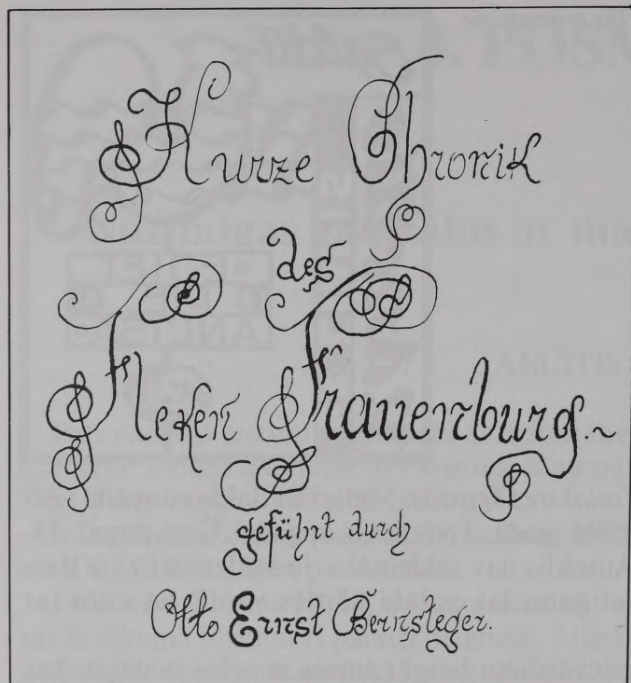 Kurze Chronik
des
Fleken Frauenburg~
geführt durch
Otto Ernst Bernsteger.